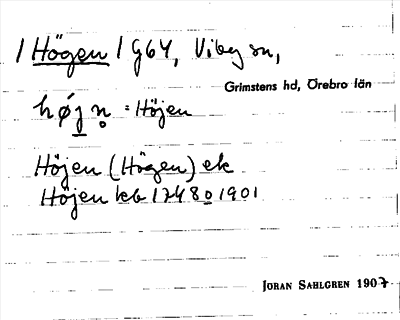 / Högen / G64, Viby sn,
Grimstens hd, Örebro län
højn̥ = Höjen
Höjen (Högen) ek
Höjen kb 1748 o 1901
JÖRAN SAHLGREN 1907